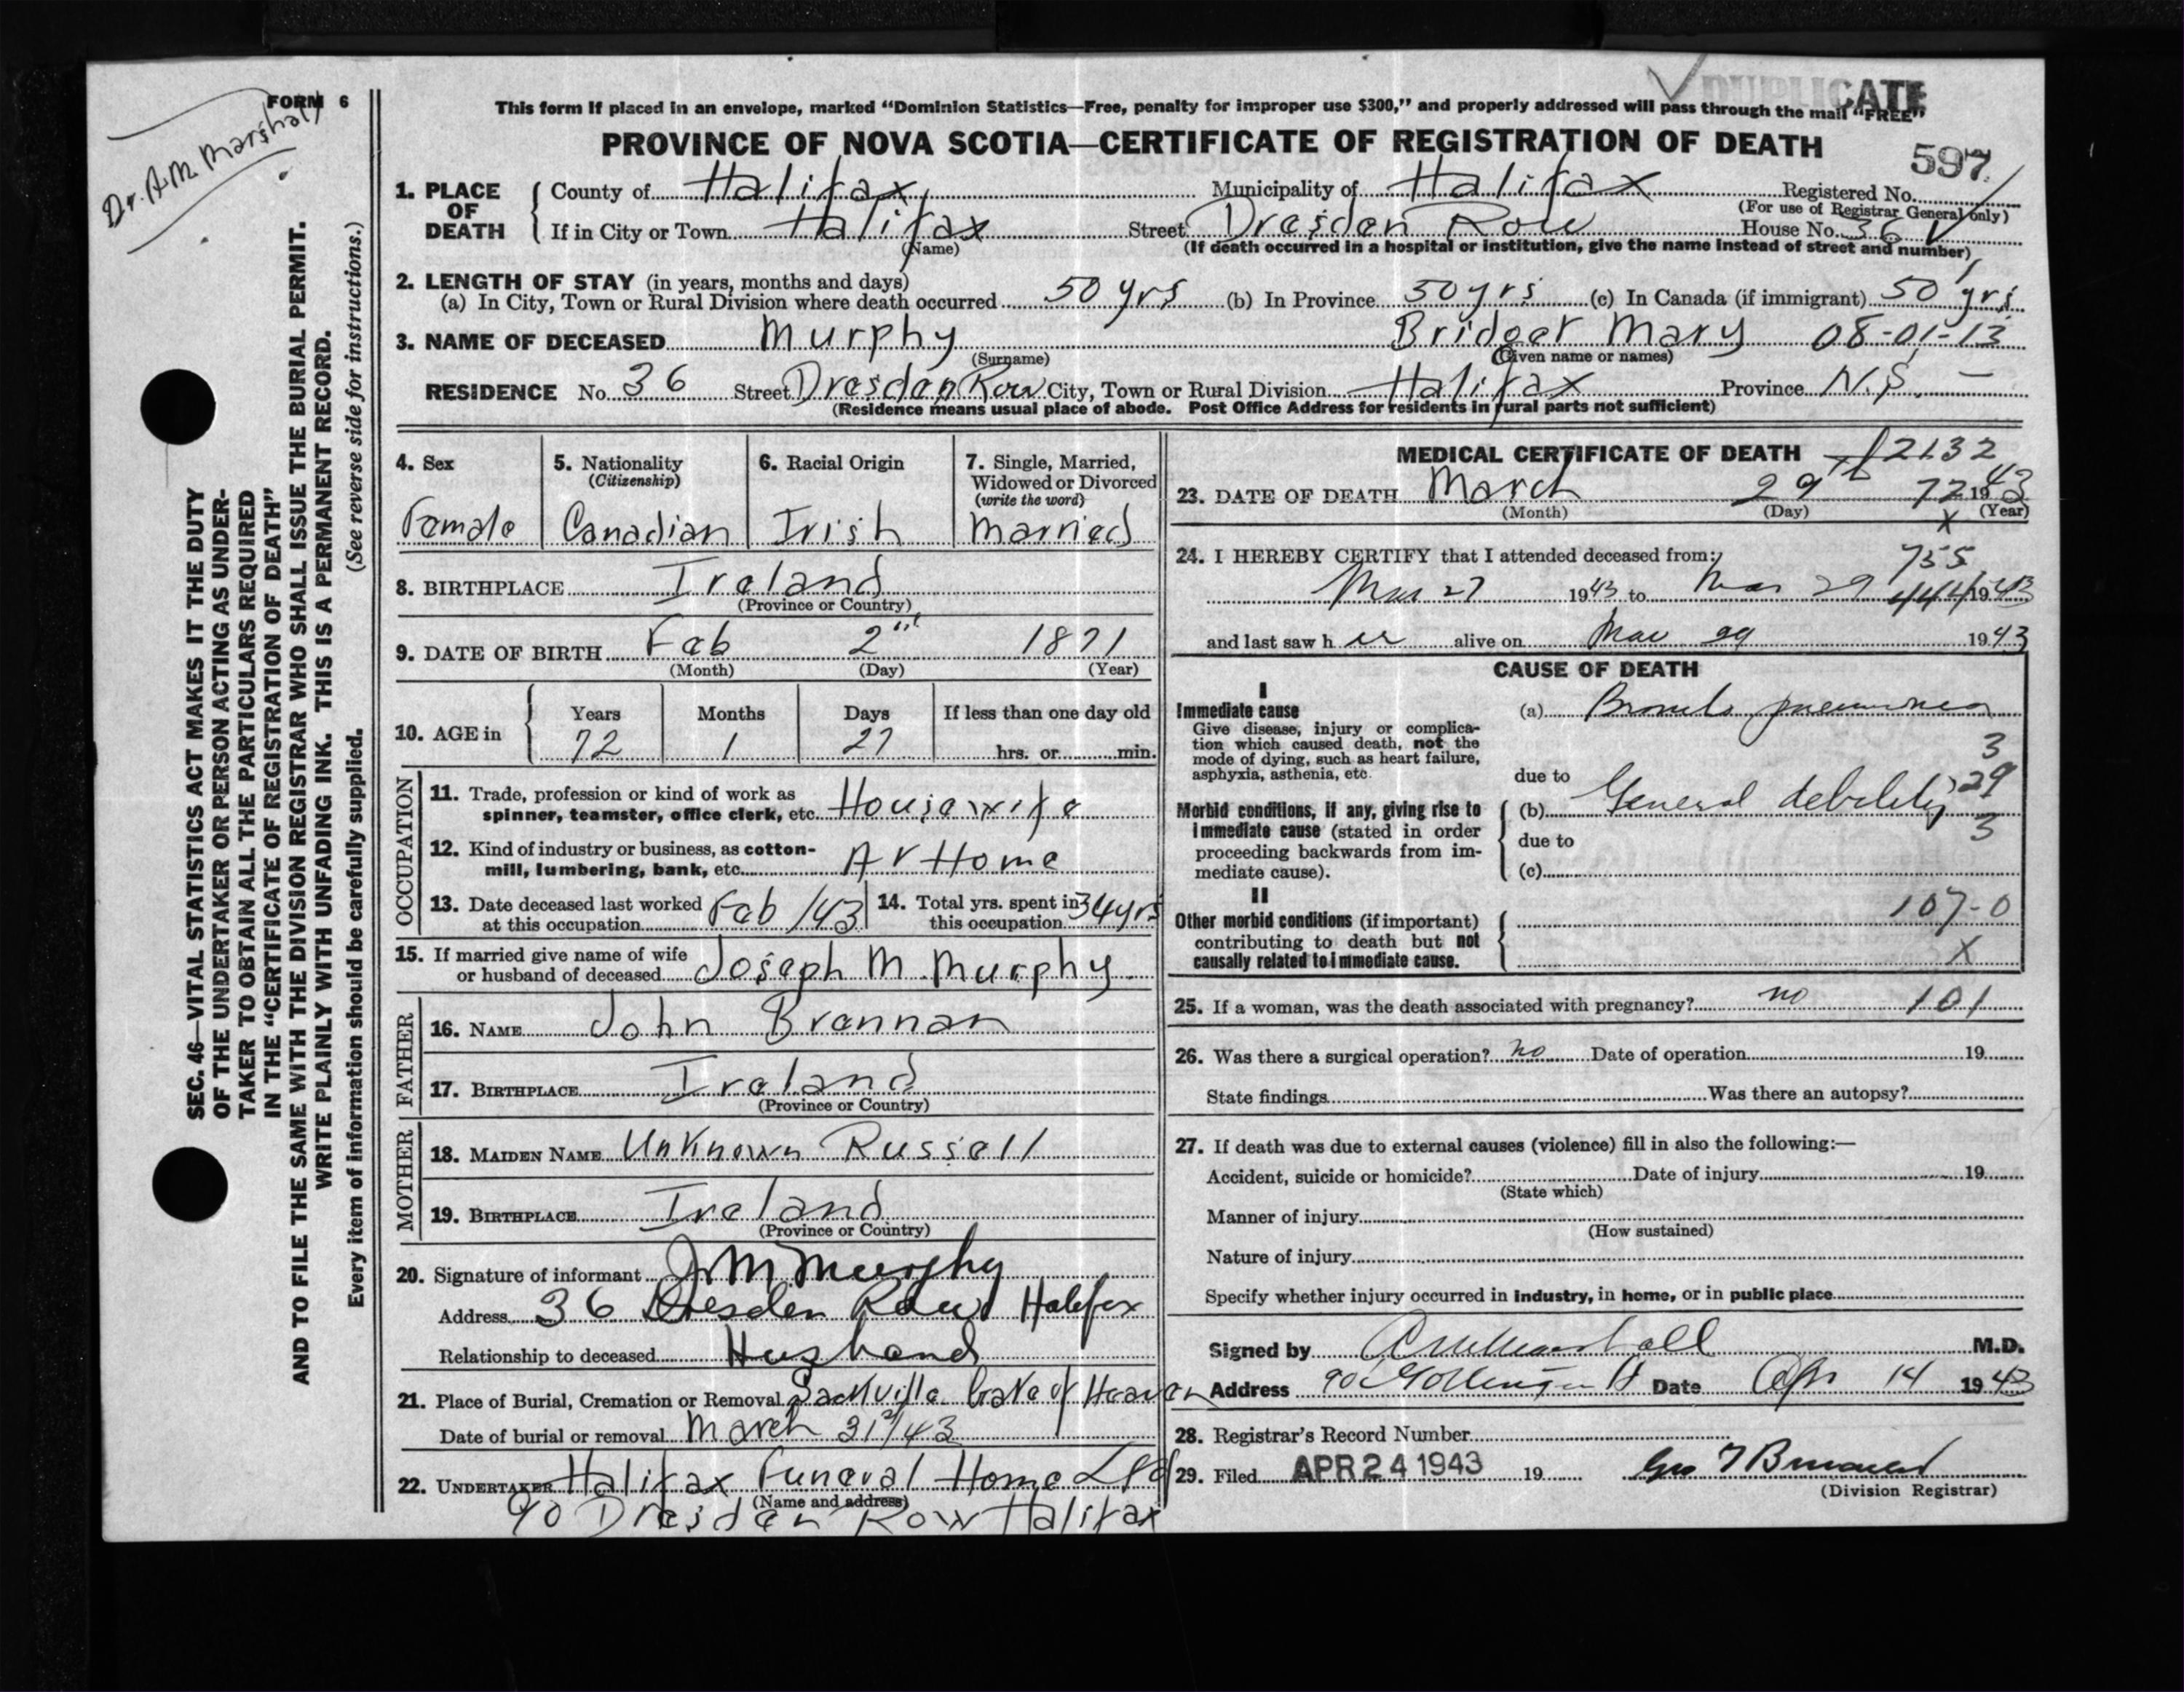 DUPLICATE
FORM 6
Dr. A M Marshall
This form if placed in an envelope, marked “Dominion Statistics—Free, penalty for improper use $300,” and properly addressed will pass through the mail “FREE”
PROVINCE OF NOVA SCOTIA—CERTIFICATE OF REGISTRATION OF DEATH
597
1. PLACE OF DEATH
County of Halifax Municipality of Halifax Registered No.
(For use of Registrar General only)
If in City or Town Halifax Street Dresden Row House No. 36
(Name) (If death occurred in a hospital or institution, give the name instead of street and number)
2. LENGTH OF STAY (in years, months and days)
(a) In City, Town or Rural Division where death occurred 50 yrs (b) In Province 50 yrs (c) In Canada (if immigrant) 50 yrs.
3. NAME OF DECEASED Murphy Bridget Mary 08-01-13
(Surname) (Given name or names)
RESIDENCE No. 36 Street Dresden Row City, Town or Rural Division Halifax Province N.S. —
(Residence means usual place of abode. Post Office Address for residents in rural parts not sufficient)
4. Sex
Female
5. Nationality
(Citizenship)
Canadian
6. Racial Origin
Irish
7. Single, Married,
Widowed or Divorced
(write the word)
Married
8. BIRTHPLACE Ireland
(Province or Country)
9. DATE OF BIRTH Feb 2nd 1871
(Month) (Day) (Year)
10. AGE in
Years Months Days If less than one day old
72 1 27 hrs. or min.
OCCUPATION
11. Trade, profession or kind of work as
spinner, teamster, office clerk, etc. Housewife
12. Kind of industry or business, as cotton-
mill, lumbering, bank, etc. At Home
13. Date deceased last worked
at this occupation Feb /43
14. Total yrs. spent in
this occupation 34 yrs
15. If married give name of wife
or husband of deceased Joseph M. Murphy
FATHER
16. NAME John Brennan
17. BIRTHPLACE Ireland
(Province or Country)
MOTHER
18. MAIDEN NAME Unknown Russell
19. BIRTHPLACE Ireland
(Province or Country)
20. Signature of informant J M Murphy
Address 36 Dresden Row Halifax
Relationship to deceased Husband
21. Place of Burial, Cremation or Removal Sackville Gate of Heaven
Date of burial or removal March 31st/43
22. UNDERTAKER Halifax Funeral Home Ltd
(Name and address)
90 Dresden Row Halifax
MEDICAL CERTIFICATE OF DEATH 2132
23. DATE OF DEATH March 29th 72 1943
(Month) (Day) (Year)
X
24. I HEREBY CERTIFY that I attended deceased from: 755
Mar 27 1943 to Mar 29 444 1943
and last saw h er alive on Mar 29 1943
CAUSE OF DEATH
I
Immediate cause
Give disease, injury or complica-
tion which caused death, not the
mode of dying, such as heart failure,
asphyxia, asthenia, etc.
(a) Broncho pneumonia
3
due to
29
Morbid conditions, if any, giving rise to
immediate cause (stated in order
proceeding backwards from im-
mediate cause).
(b) General debility
3
due to
(c)
II
107-0
Other morbid conditions (if important)
contributing to death but not
causally related to immediate cause.
X
25. If a woman, was the death associated with pregnancy? no 101
26. Was there a surgical operation? no Date of operation 19
State findings Was there an autopsy?
27. If death was due to external causes (violence) fill in also the following:—
Accident, suicide or homicide? Date of injury 19
(State which)
Manner of injury
(How sustained)
Nature of injury
Specify whether injury occurred in industry, in home, or in public place
Signed by A M Marshall M.D.
Address Date Apr 14 1943
28. Registrar’s Record Number
29. Filed APR 24 1943 19
(Division Registrar)
SEC. 46—VITAL STATISTICS ACT MAKES IT THE DUTY
OF THE UNDERTAKER OR PERSON ACTING AS UNDER-
TAKER TO OBTAIN ALL THE PARTICULARS REQUIRED
IN THE “CERTIFICATE OF REGISTRATION OF DEATH”
AND TO FILE THE SAME WITH THE DIVISION REGISTRAR WHO SHALL ISSUE THE BURIAL PERMIT.
WRITE PLAINLY WITH UNFADING INK. THIS IS A PERMANENT RECORD.
Every item of information should be carefully supplied. (See reverse side for instructions.)